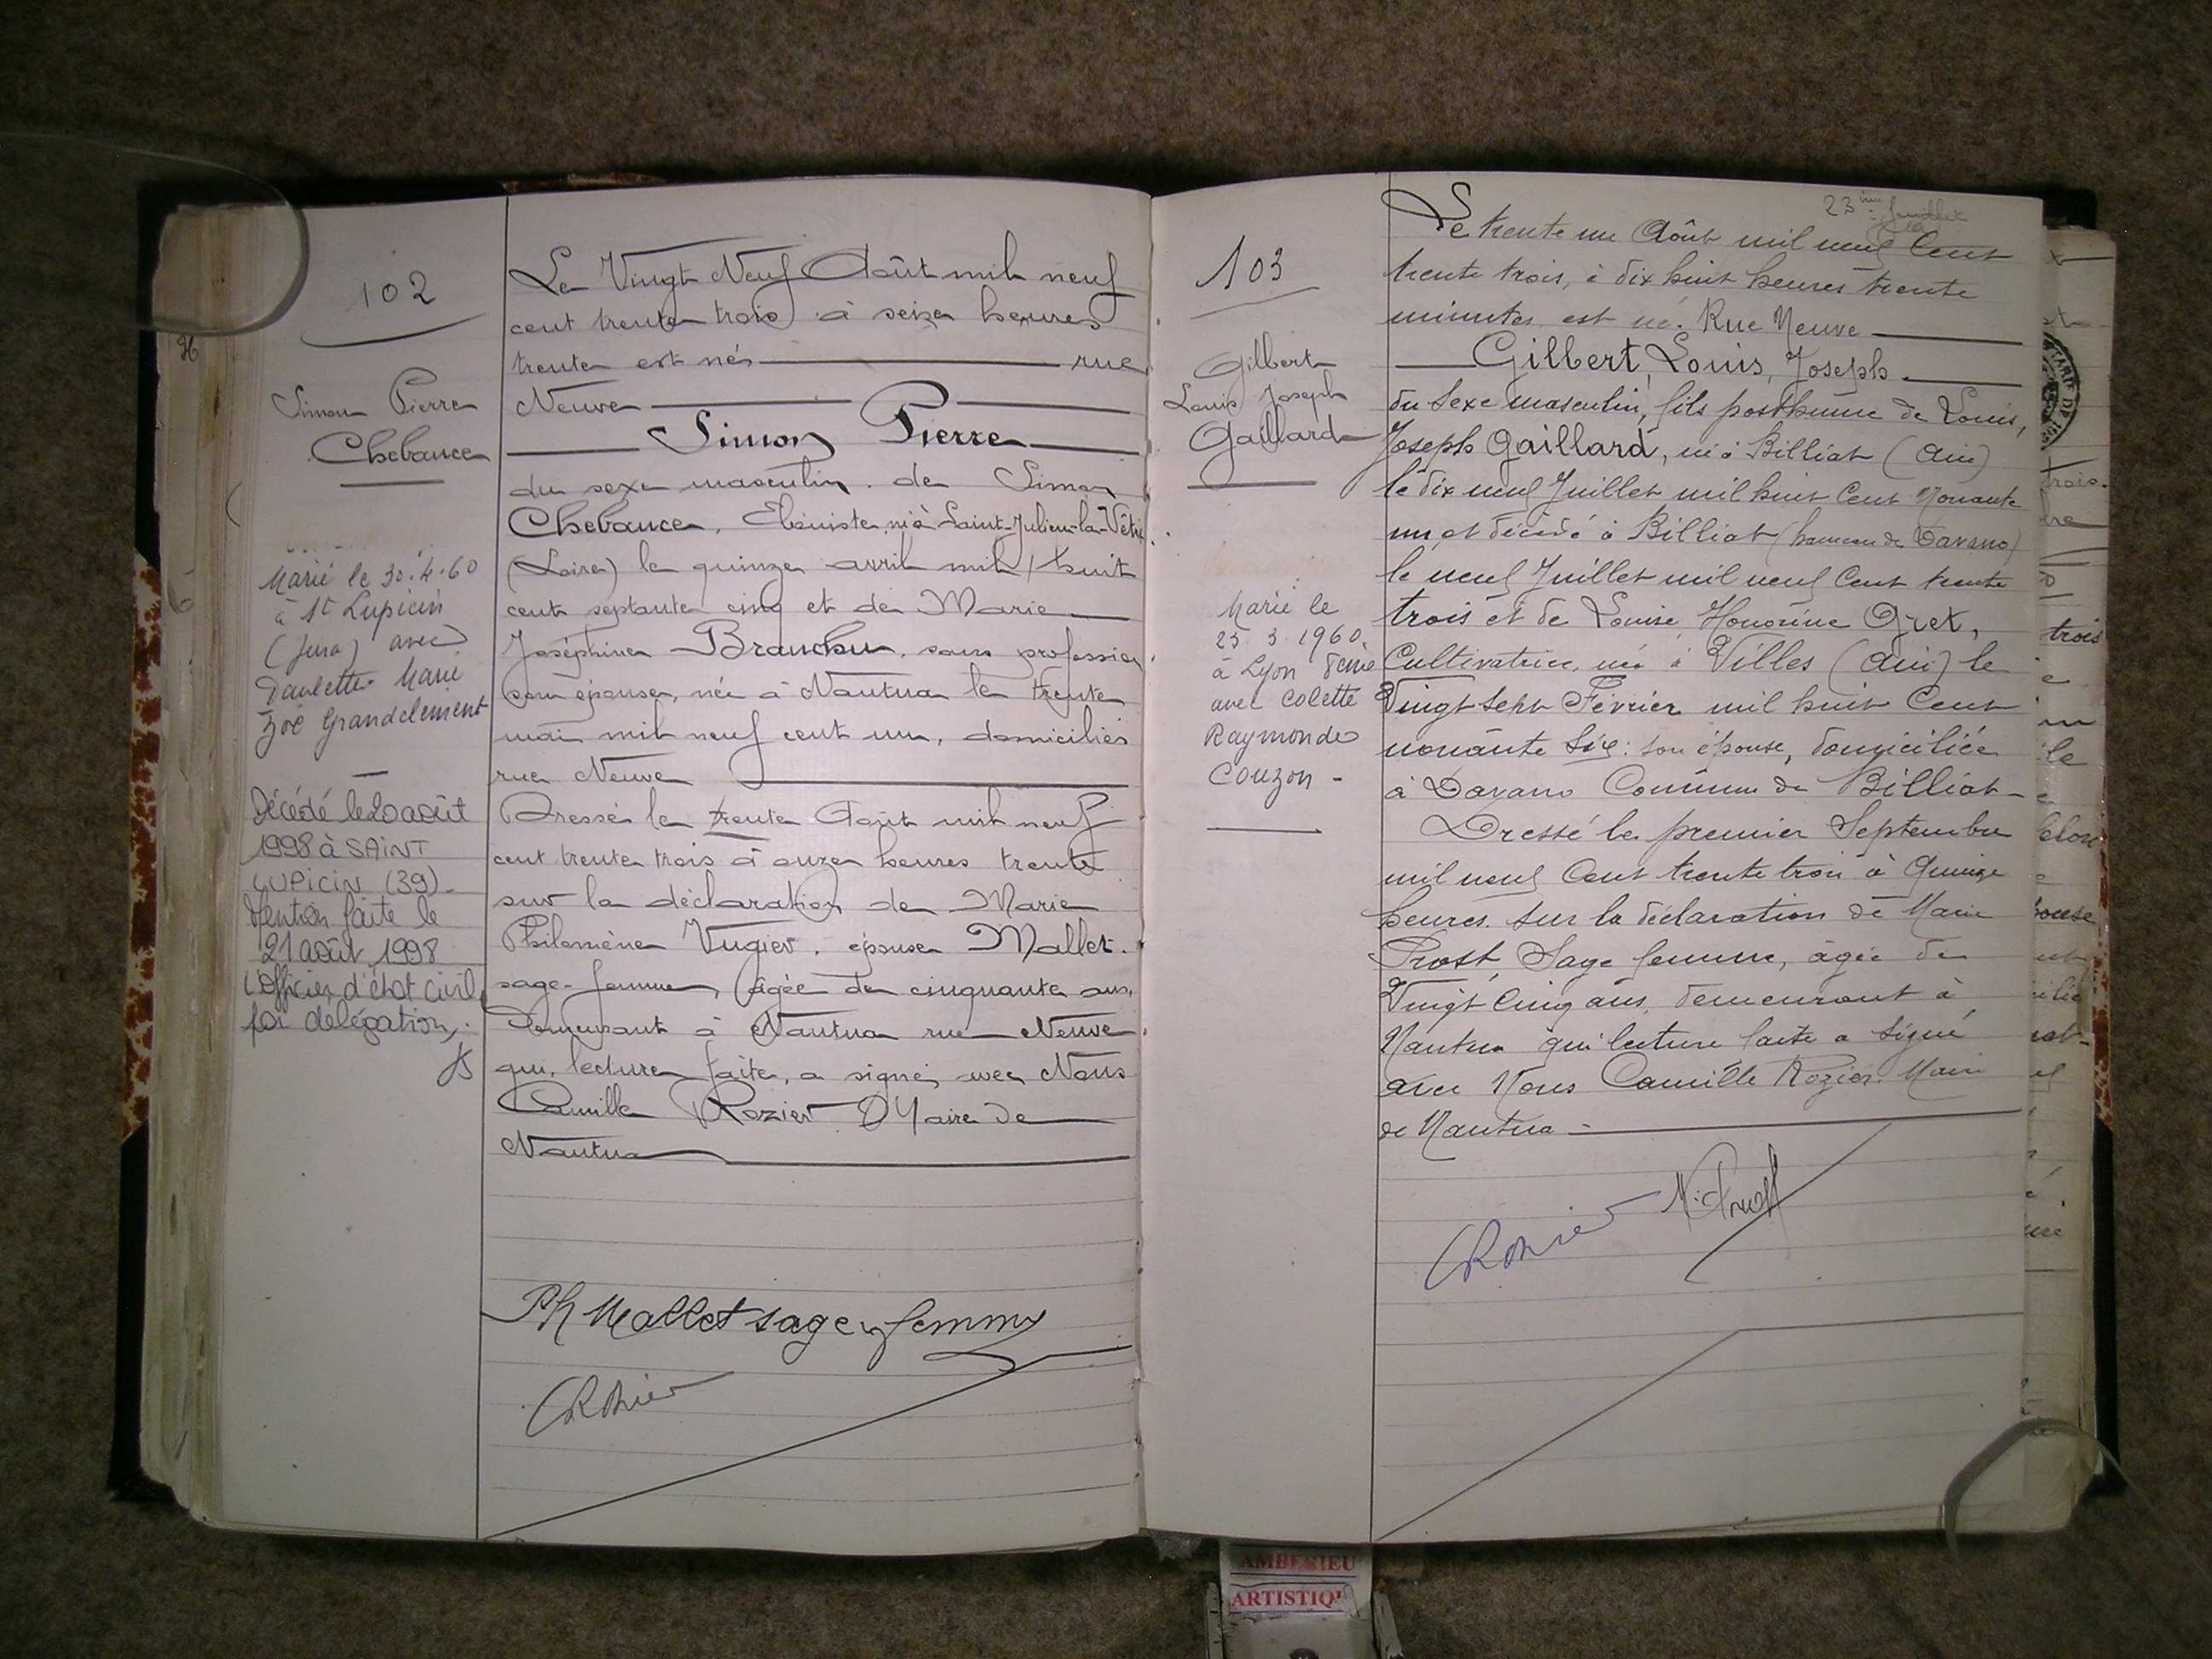 102
Simon Pierre
Chebance
Marié le 30.4.60
à St Lupicin
(Jura) avec
Paulette Marie
Zoé Grandclément
Décédé le 20 août
1998 à SAINT
LUPICIN (39)
Mention faite le
21 août 1998
L'officier d'état civil
par délégation,
Le Vingt Neuf Août mil neuf
cent trente trois à seize heures
trente est né rue
Neuve
Simon Pierre
du sexe masculin. de Simon
Chebance, Ebéniste né à Saint-Julien-la-Vêtre
(Loire) le quinze avril mil huit
cent septante cinq et de Marie
Joséphine Branchu, sans profession
son épouse, née à Nantua le trente
mai mil neuf cent un, domiciliés
rue Neuve
Dressé le trente Août mil neuf
cent trente trois à onze heures trente
sur la déclaration de Marie
Philomène Vugier, épouse Mallet.
sage-femme, âgée de cinquante ans,
demeurant à Nantua rue Neuve
qui, lecture faite, a signé avec Nous
Camille Rozier Maire de
Nantua
Ph Mallet sage femme
CRozier
23ème feuillet
103
Gilbert
Louis Joseph
Gaillard
Marié le
25 3 1960
à Lyon
avec Colette
Raymonde
Couzon -
Le trente un Août mil neuf Cent
trente trois, à dix huit heures trente
minutes est né. Rue Neuve
Gilbert, Louis, Joseph
du sexe masculin, fils posthume de Louis,
Joseph Gaillard, né à Billiat (Ain)
le dix neuf Juillet mil huit Cent Nonante
un, et décédé à Billiat (hameau de Davano)
le neuf Juillet mil neuf Cent trente
trois et de Louise Honorine Gret,
Cultivatrice, née à Villes (Ain) le
Vingt sept Février mil huit Cent
nonante six: son épouse, domiciliée
à Davano Commune de Billiat -
Dressé le premier Septembre
mil neuf Cent trente trois à Quinze
heures. sur la déclaration de Marie
Prost, Sage femme, âgée de
Vingt Cinq ans, demeurant à
Nantua qui lecture faite a signé
avec Nous Camille Rozier. Maire
de Nantua -
M. Prost
CRozier
trois.
trois
le
AMBERIEU
ARTISTIQ